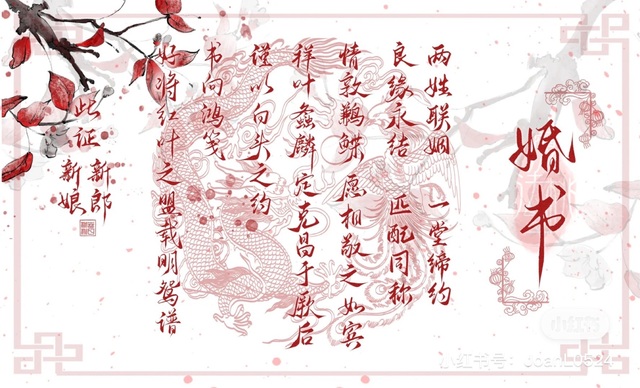 婚书
两姓联姻 一堂缔约
良缘永结 匹配同称
情敦鹣鲽 愿相敬之如宾
祥叶螽麟 定克昌于厥后
谨以白头之约
书向鸿笺
好将红叶之盟载明鸳谱
此证
新郎
新娘
小红书